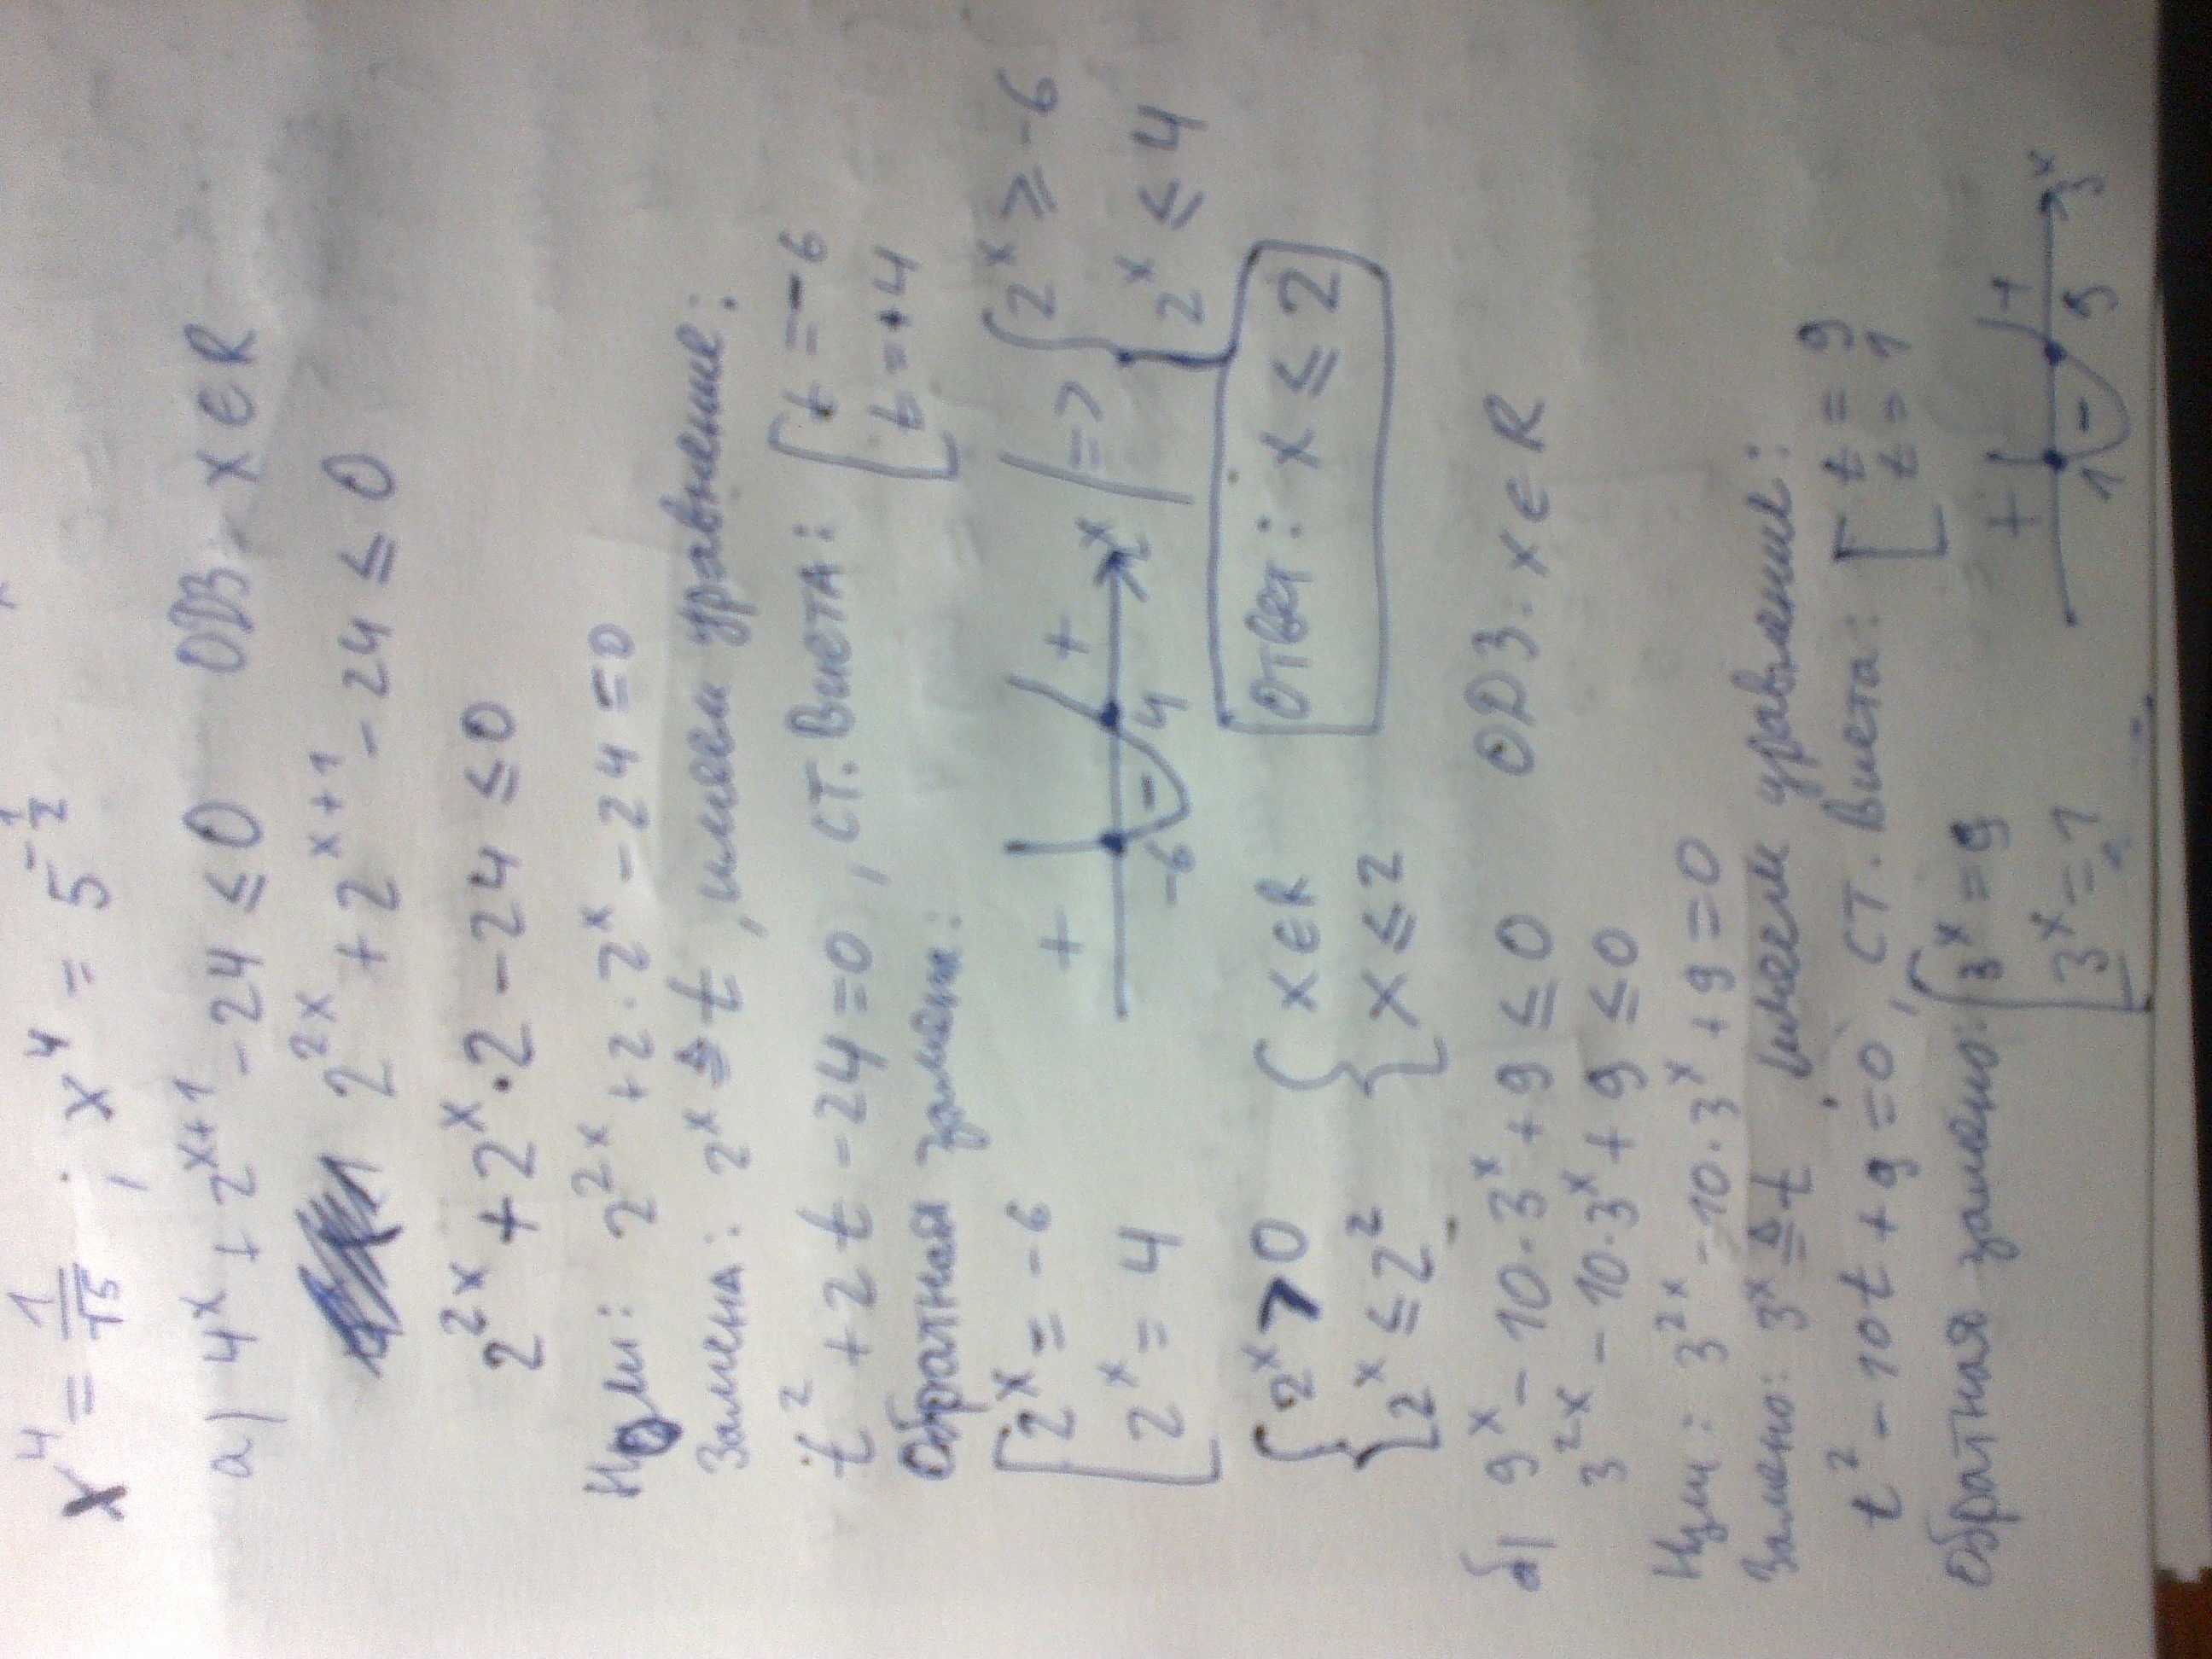 x⁴ = 1/√5 ; x⁴ = 5^(-1/2)
а) 4ˣ + 2ˣ⁺¹ - 24 ≤ 0 ОДЗ: x ∈ R
2²ˣ + 2ˣ⁺¹ - 24 ≤ 0
2²ˣ + 2ˣ · 2 - 24 ≤ 0
Нули: 2²ˣ + 2 · 2ˣ - 24 = 0
Замена: 2ˣ ≜ t, имеем уравнение:
t² + 2t - 24 = 0, ст. Виета: [ t = -6
t = +4
Обратная замена:
[ 2ˣ = -6
2ˣ = 4
+ - +
-6 4 2ˣ
=> { 2ˣ ≥ -6
2ˣ ≤ 4
{ 2ˣ > 0 { x ∈ R
2ˣ ≤ 2² x ≤ 2
Ответ: x ≤ 2
б) 9ˣ - 10 · 3ˣ + 9 ≤ 0 ОДЗ: x ∈ R
3²ˣ - 10 · 3ˣ + 9 ≤ 0
Нули: 3²ˣ - 10 · 3ˣ + 9 = 0
Замена: 3ˣ ≜ t имеем уравнение:
t² - 10t + 9 = 0, ст. Виета: [ t = 9
t = 1
Обратная замена: [ 3ˣ = 9
3ˣ = 1
+ - +
1 9 3ˣ